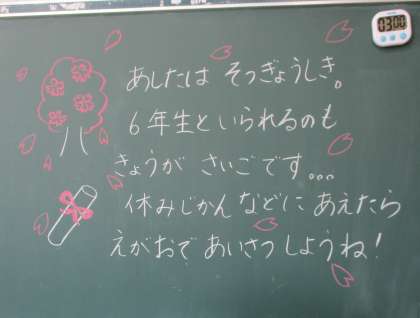 あしたは そつぎょうしき。
6年生といられるのも
きょうが さいごです。。。
休みじかんなどに あえたら
えがおで あいさつしようね!